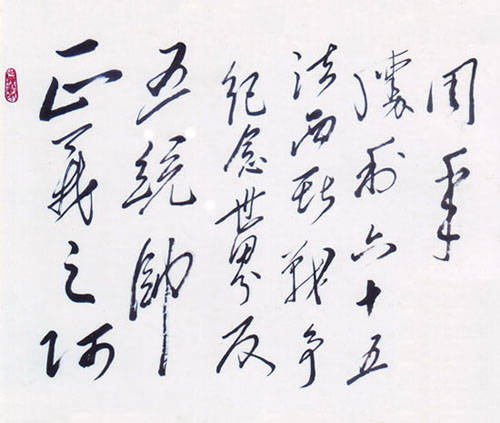 正義之师
五統帥
紀念世界反
法西斯戰争
勝利六十五
周年